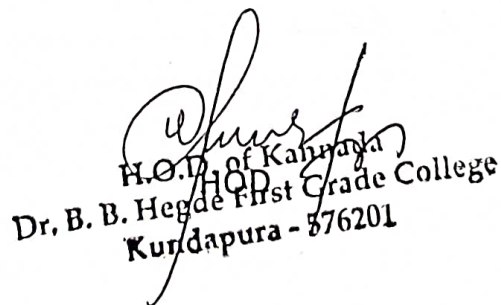 H.O.D. of Kannada
HOD
Dr. B. B. Hegde First Grade College
Kundapura - 576201